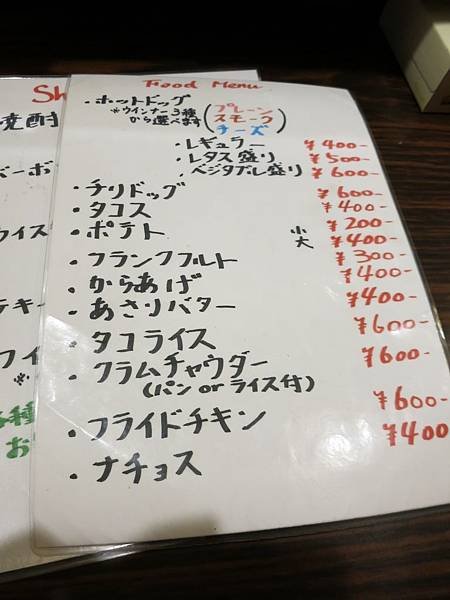 Food Menu
・ホットドッグ
※ウインナー3種
から選べます
(プレーン
スモーク
チーズ)
・レギュラー ¥400-
・レタス盛り ¥500-
・ベジタブル盛り ¥600-
・チリドッグ ¥600-
・タコス ¥400-
・ポテト 小 ¥200-
大 ¥400-
・フランクフルト ¥300-
・からあげ ¥400-
・あさりバター ¥400-
・タコライス ¥600-
・クラムチャウダー ¥600-
(パン or ライス付)
・フライドチキン ¥600-
・ナチョス ¥400
Sh
焼酎
バーボ
ウイス
テキー
ワイ
※
各種
お